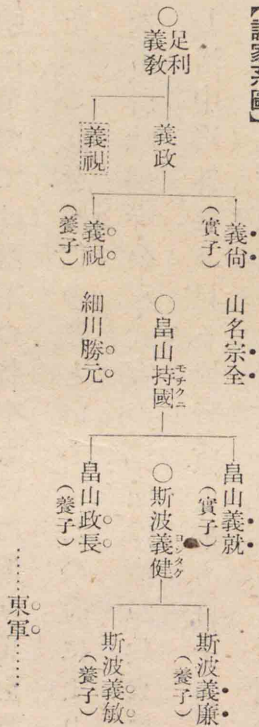 【諸家系圖】
○足利
義教
義政
義視
義尙
(實子)
義視
(養子)
山名宗全
細川勝元
○畠山持國
モチクニ
畠山義就
(實子)
畠山政長
(養子)
○斯波義健
ヨシタケ
斯波義廉
(養子)
斯波義敏
(養子)
………東軍………